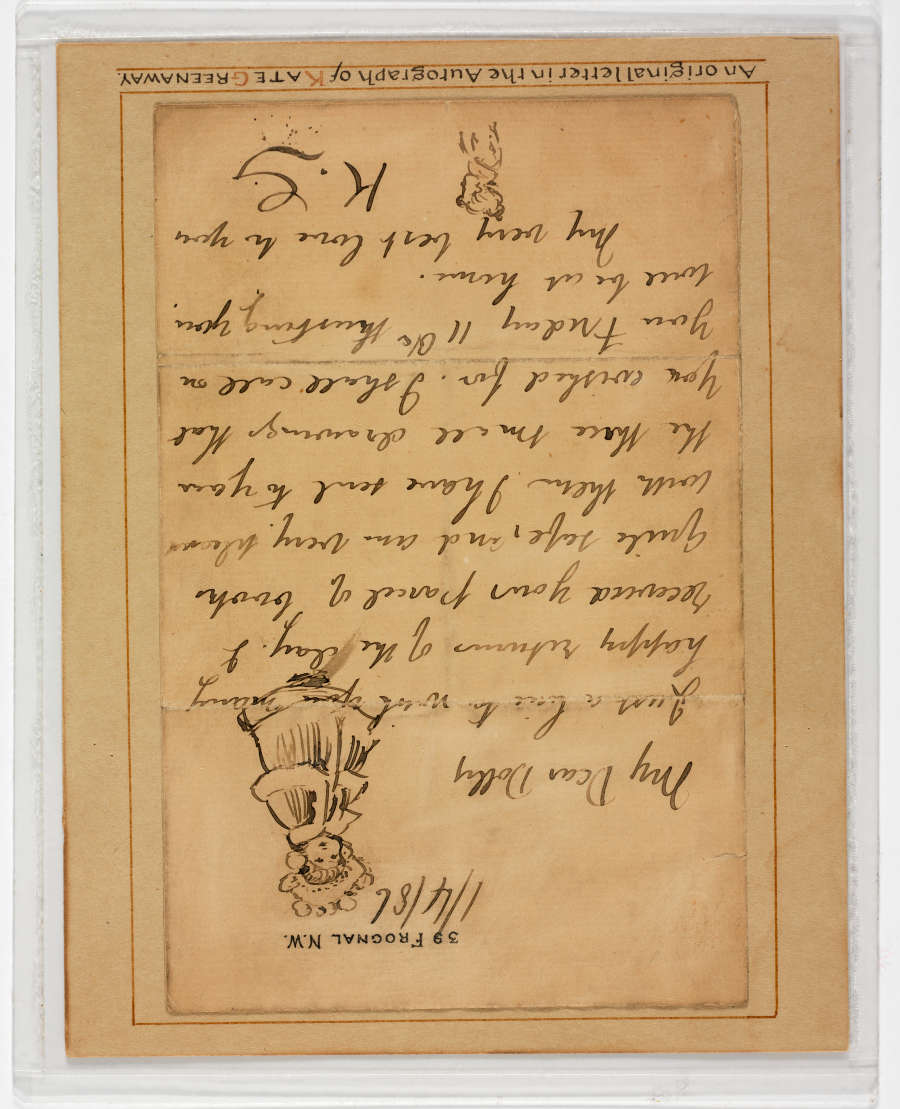 39 FROGNAL N.W.
1/4/86
My Dear Dolly
Just a line to wish you many
happy returns of the day. I
received your parcel of books
quite safe, and am very pleased
with them. I have sent to you
the three small drawings that
you wished for. I shall call on
you Friday 11th trusting you
will be at home.
My very best love to you
K. G.
An original letter in the Autograph of KATE GREENAWAY.